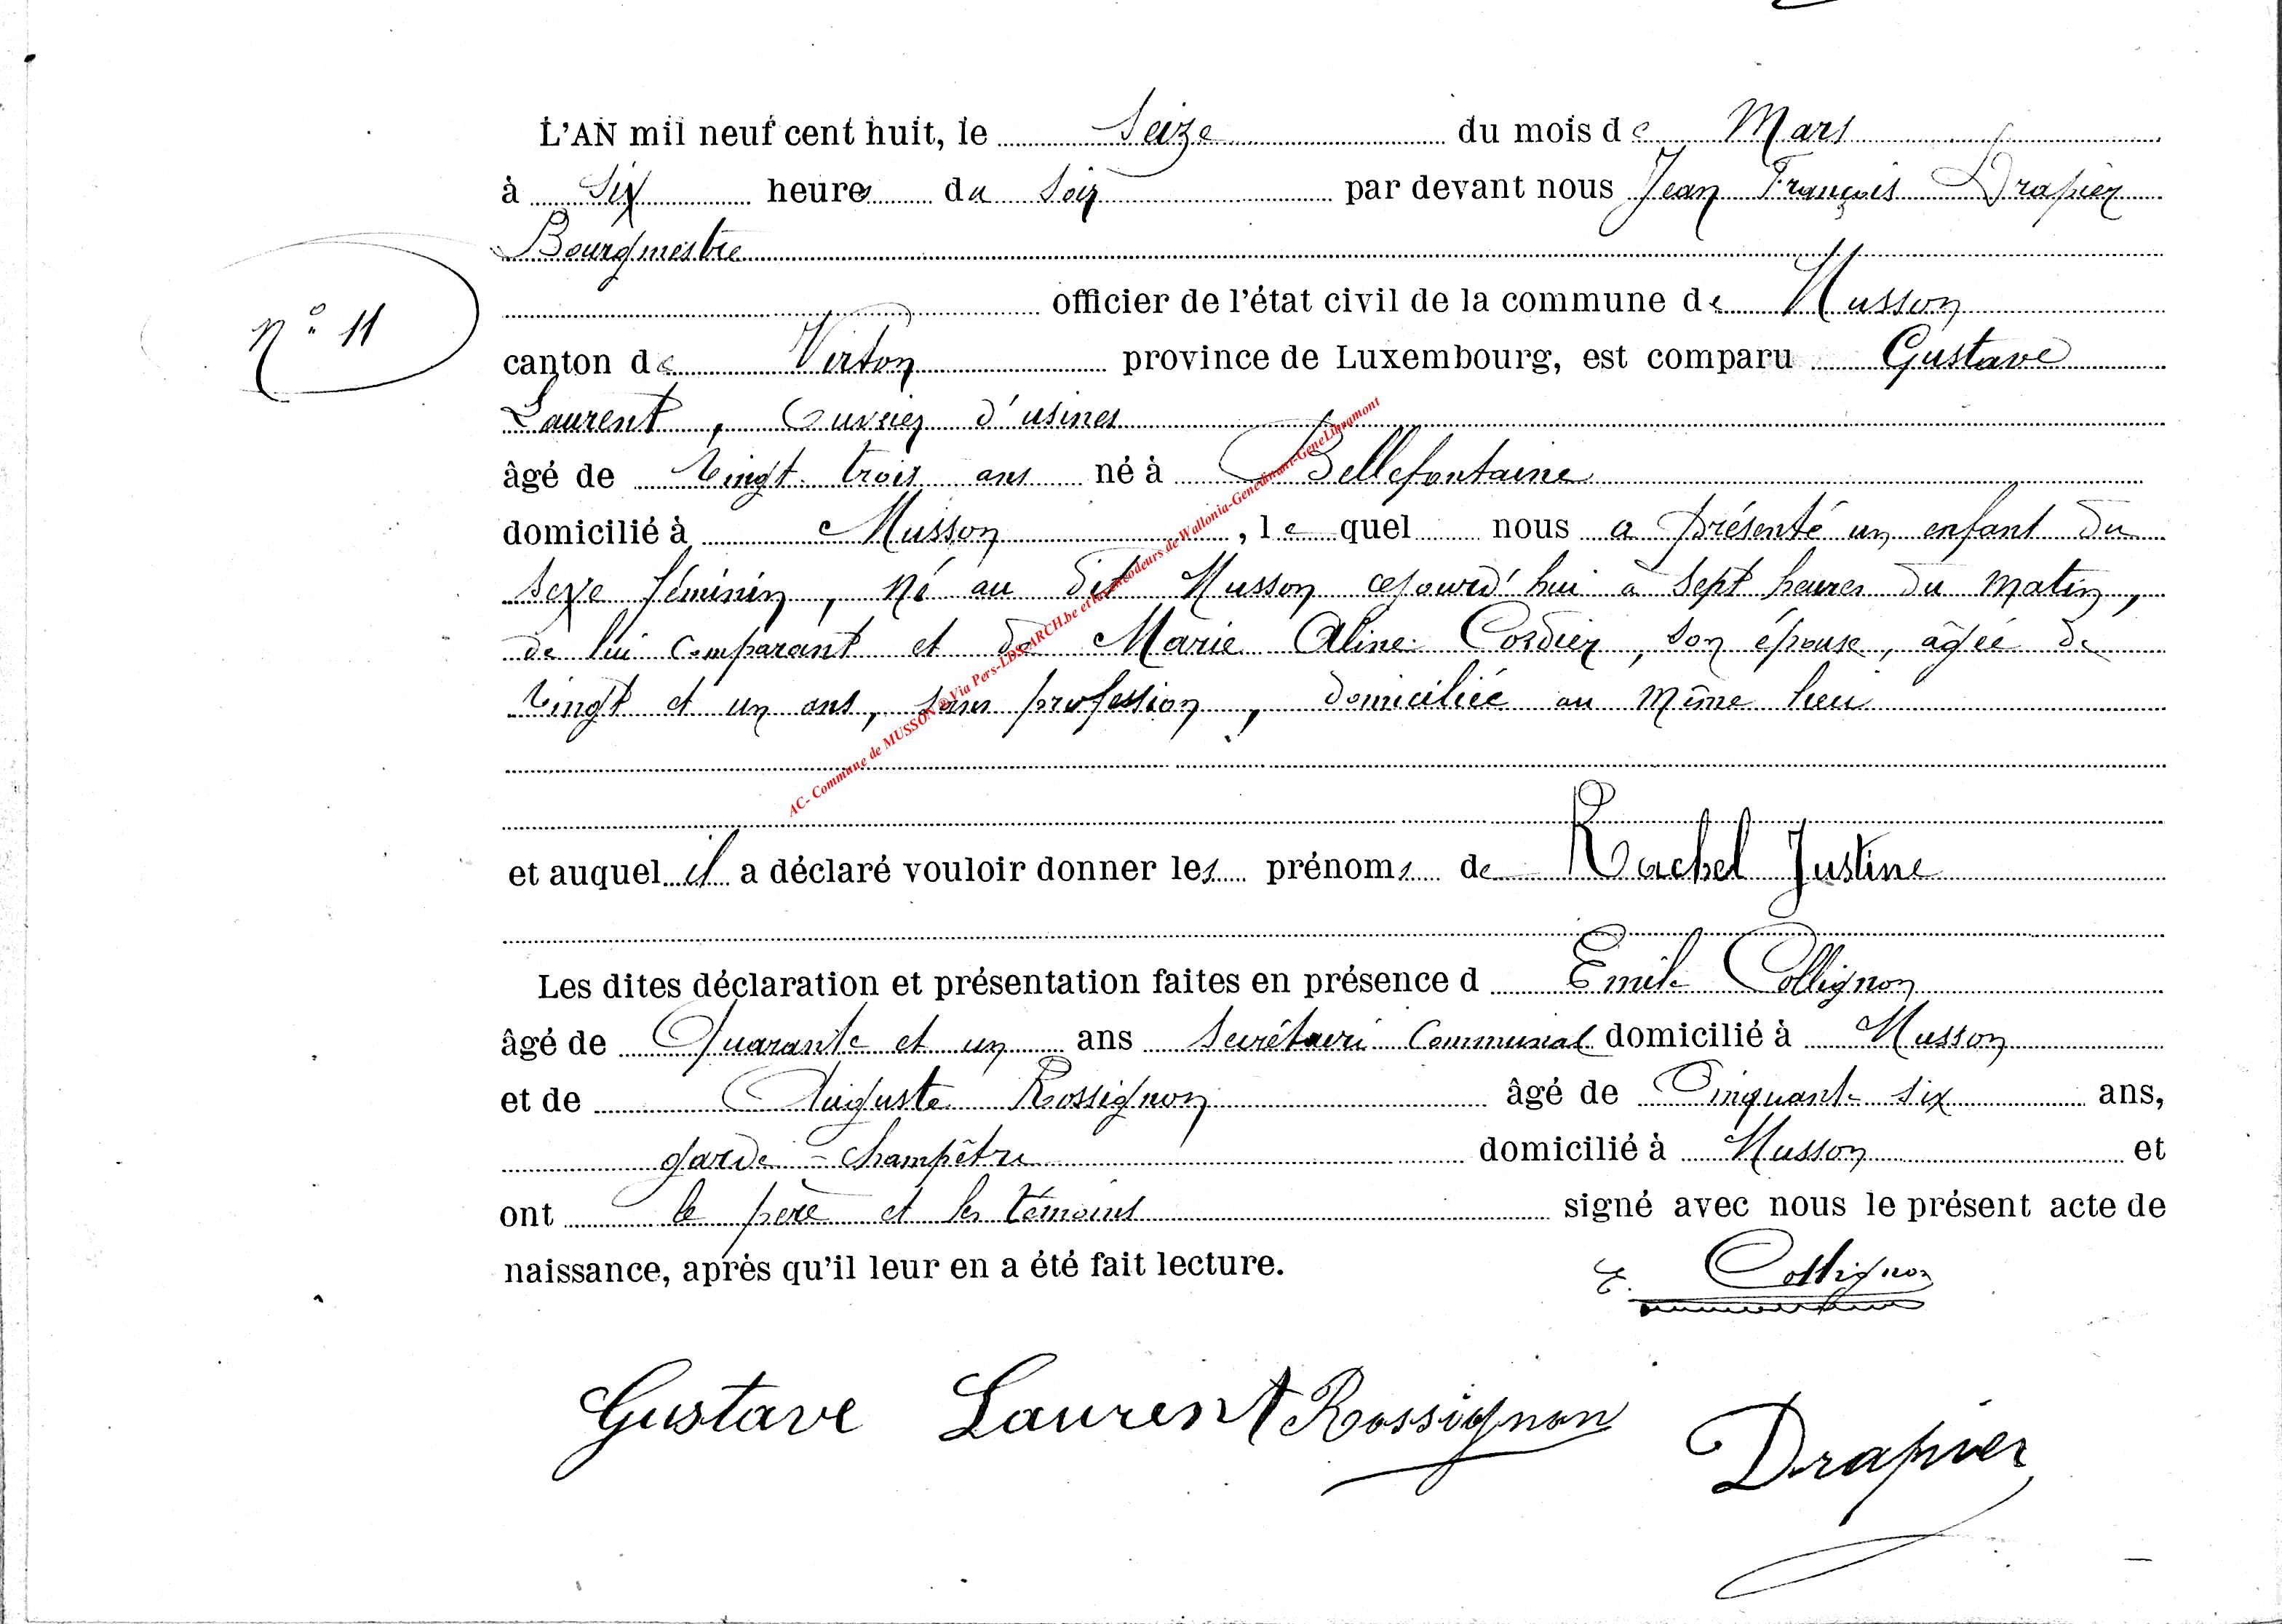 L'AN mil neuf cent huit, le Seize du mois de Mars
à Six heures du Soir par devant nous Jean François Drapier
Bourgmestre
officier de l'état civil de la commune de Musson
N° 11
canton de Virton province de Luxembourg, est comparu Gustave
Laurent, Ouvrier d'usines
âgé de Vingt trois ans né à Bellefontaine
domicilié à Musson, lequel nous a présenté un enfant du
sexe féminin, né au dit Musson cejourd'hui à sept heures du matin,
de lui comparant et de Marie Aline Cordier, son épouse, âgée de
Vingt et un ans, sans profession, domiciliée au même lieu
AC- Commune de MUSSON ® Via Pers-LDS-ARCH.be et les encodeurs de Wallonia-Genedinant-GeneLibramont
et auquel il a déclaré vouloir donner les prénoms de Rachel Justine
Les dites déclaration et présentation faites en présence d Emile Collignon
âgé de Quarante et un ans Secrétaire Communal domicilié à Musson
et de Auguste Rossignon âgé de Cinquante six ans,
garde-champêtre domicilié à Musson et
ont le père et les témoins signé avec nous le présent acte de
naissance, après qu'il leur en a été fait lecture.
E. Collignon
Gustave Laurent Rossignon Drapier